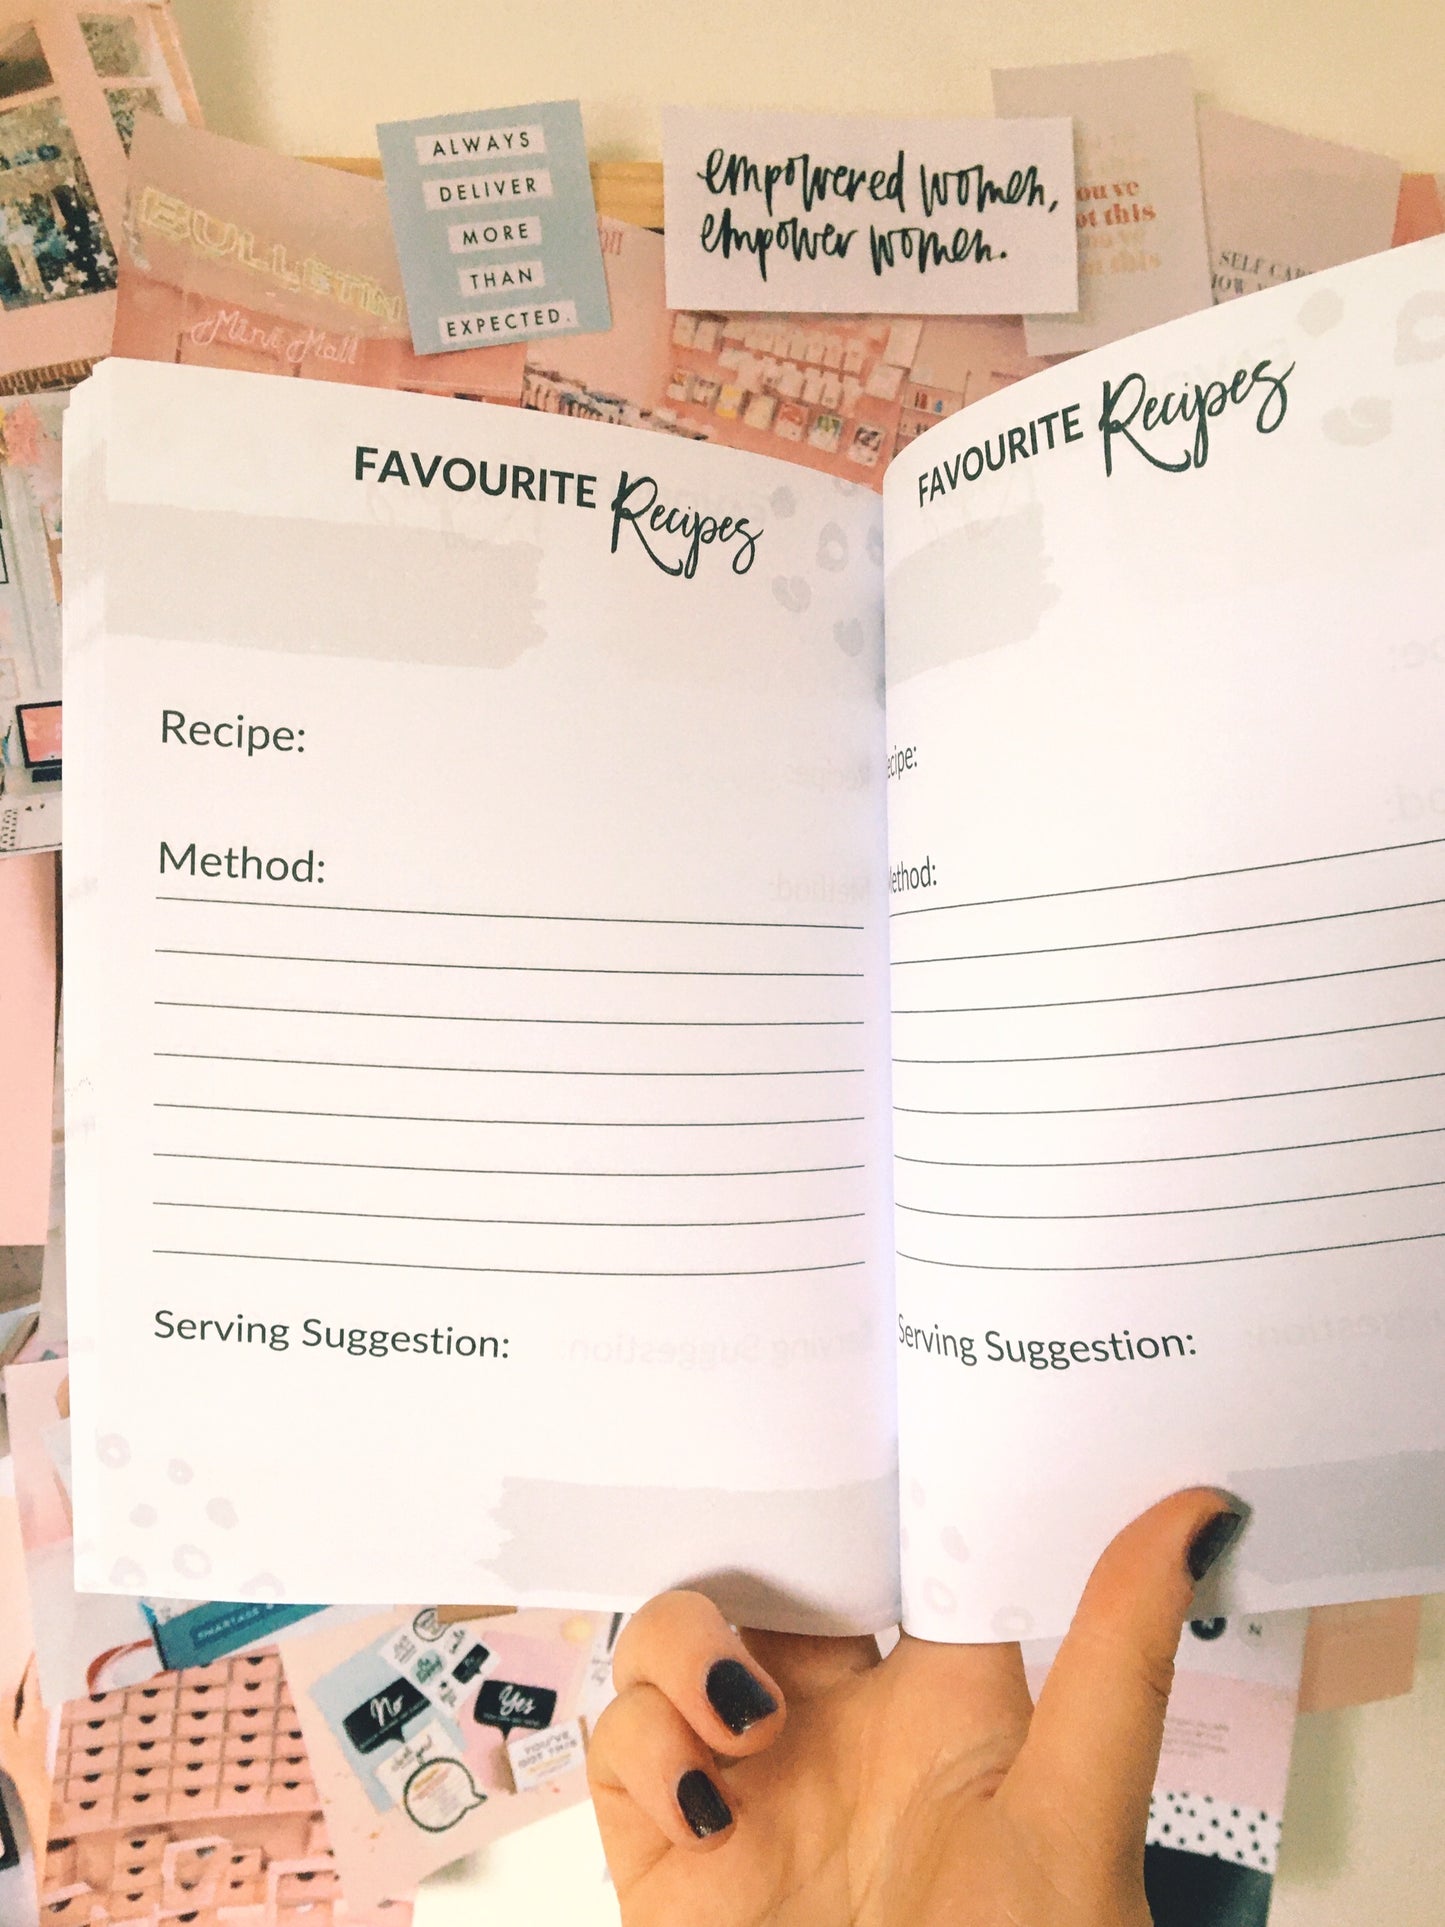 BULLETIN
Mini Mall
ALWAYS
DELIVER
MORE
THAN
EXPECTED.
empowered women,
empower women.
ou've
ot this
SELF CAR
FAVOURITE Recipes
Recipe:
Method:
Serving Suggestion:
FAVOURITE Recipes
ecipe:
ethod:
Serving Suggestion:
No
Yes
YOU'VE
GOT THIS